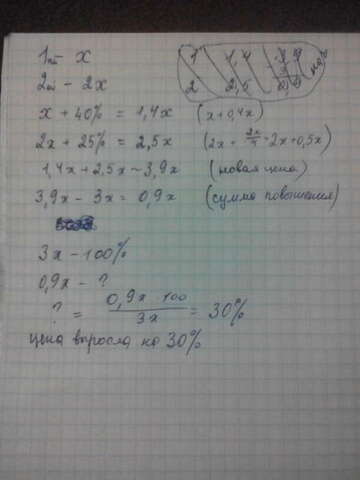 1й x
2й - 2x
x + 40% = 1,4x (x + 0,4x)
2x + 25% = 2,5x (2x + 2x/4 = 2x + 0,5x)
1,4x + 2,5x - 3,9x (новая цена)
3,9x - 3x = 0,9x (сумма повышения)
3x - 100%
0,9x - ?
? = 0,9x · 100 / 3x = 30%
цена выросла на 30%
1 1,4
2 2,5